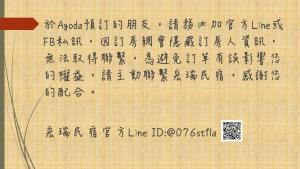 於Agoda預訂的朋友，請務必加官方Line或
FB私訊，因訂房網會隱藏訂房人資訊，
無法取得聯繫，為避免訂單有誤影響您
的權益，請主動聯繫宸瑞民宿，感謝您
的配合。
宸瑞民宿官方Line ID:@076stfla